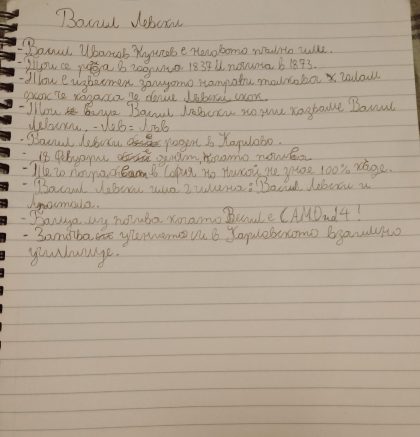 Васил Левски
- Васил Иванов Кунчев е неговото пълно име.
- Той се ражда в година 1837 и почина в 1873.
- Той е известен защото направи толкова голям
скок че казаха че беше Левски скок.
- Той Васил Лъвски но ние казваме Васил
Левски. - Лев = Лъв
- Васил Левски роден в Карлово.
- 18 Февуари денят, когато почива
- Него погребват в София но никой не знае 100% къде.
- Васил Левски има 2 имена: Васил Левски и
Апостола.
- Баща му почива когато Васил е САМО на 14!
- Започва учението си в Карловското взаимно
училище.